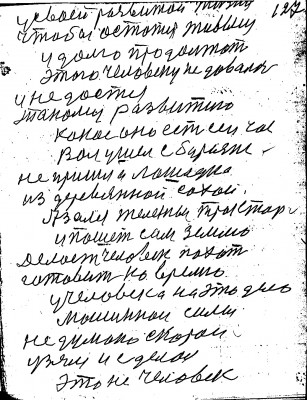 у своей развитой жизни 127
чтобы остатся живым
и долго продолжат
Этого человеку не давался
и не достиг
такому развитию
какое оно ест сейчас
Вол ушел с борозды
не пришла лошадка
из деревянной сохой.
Взялся железный трактор
и пошет сам землю
делает человек пахот
готовит ко время
у человека на это дело
машинной силы
не думано скоро
взял и сделал
Это не человек